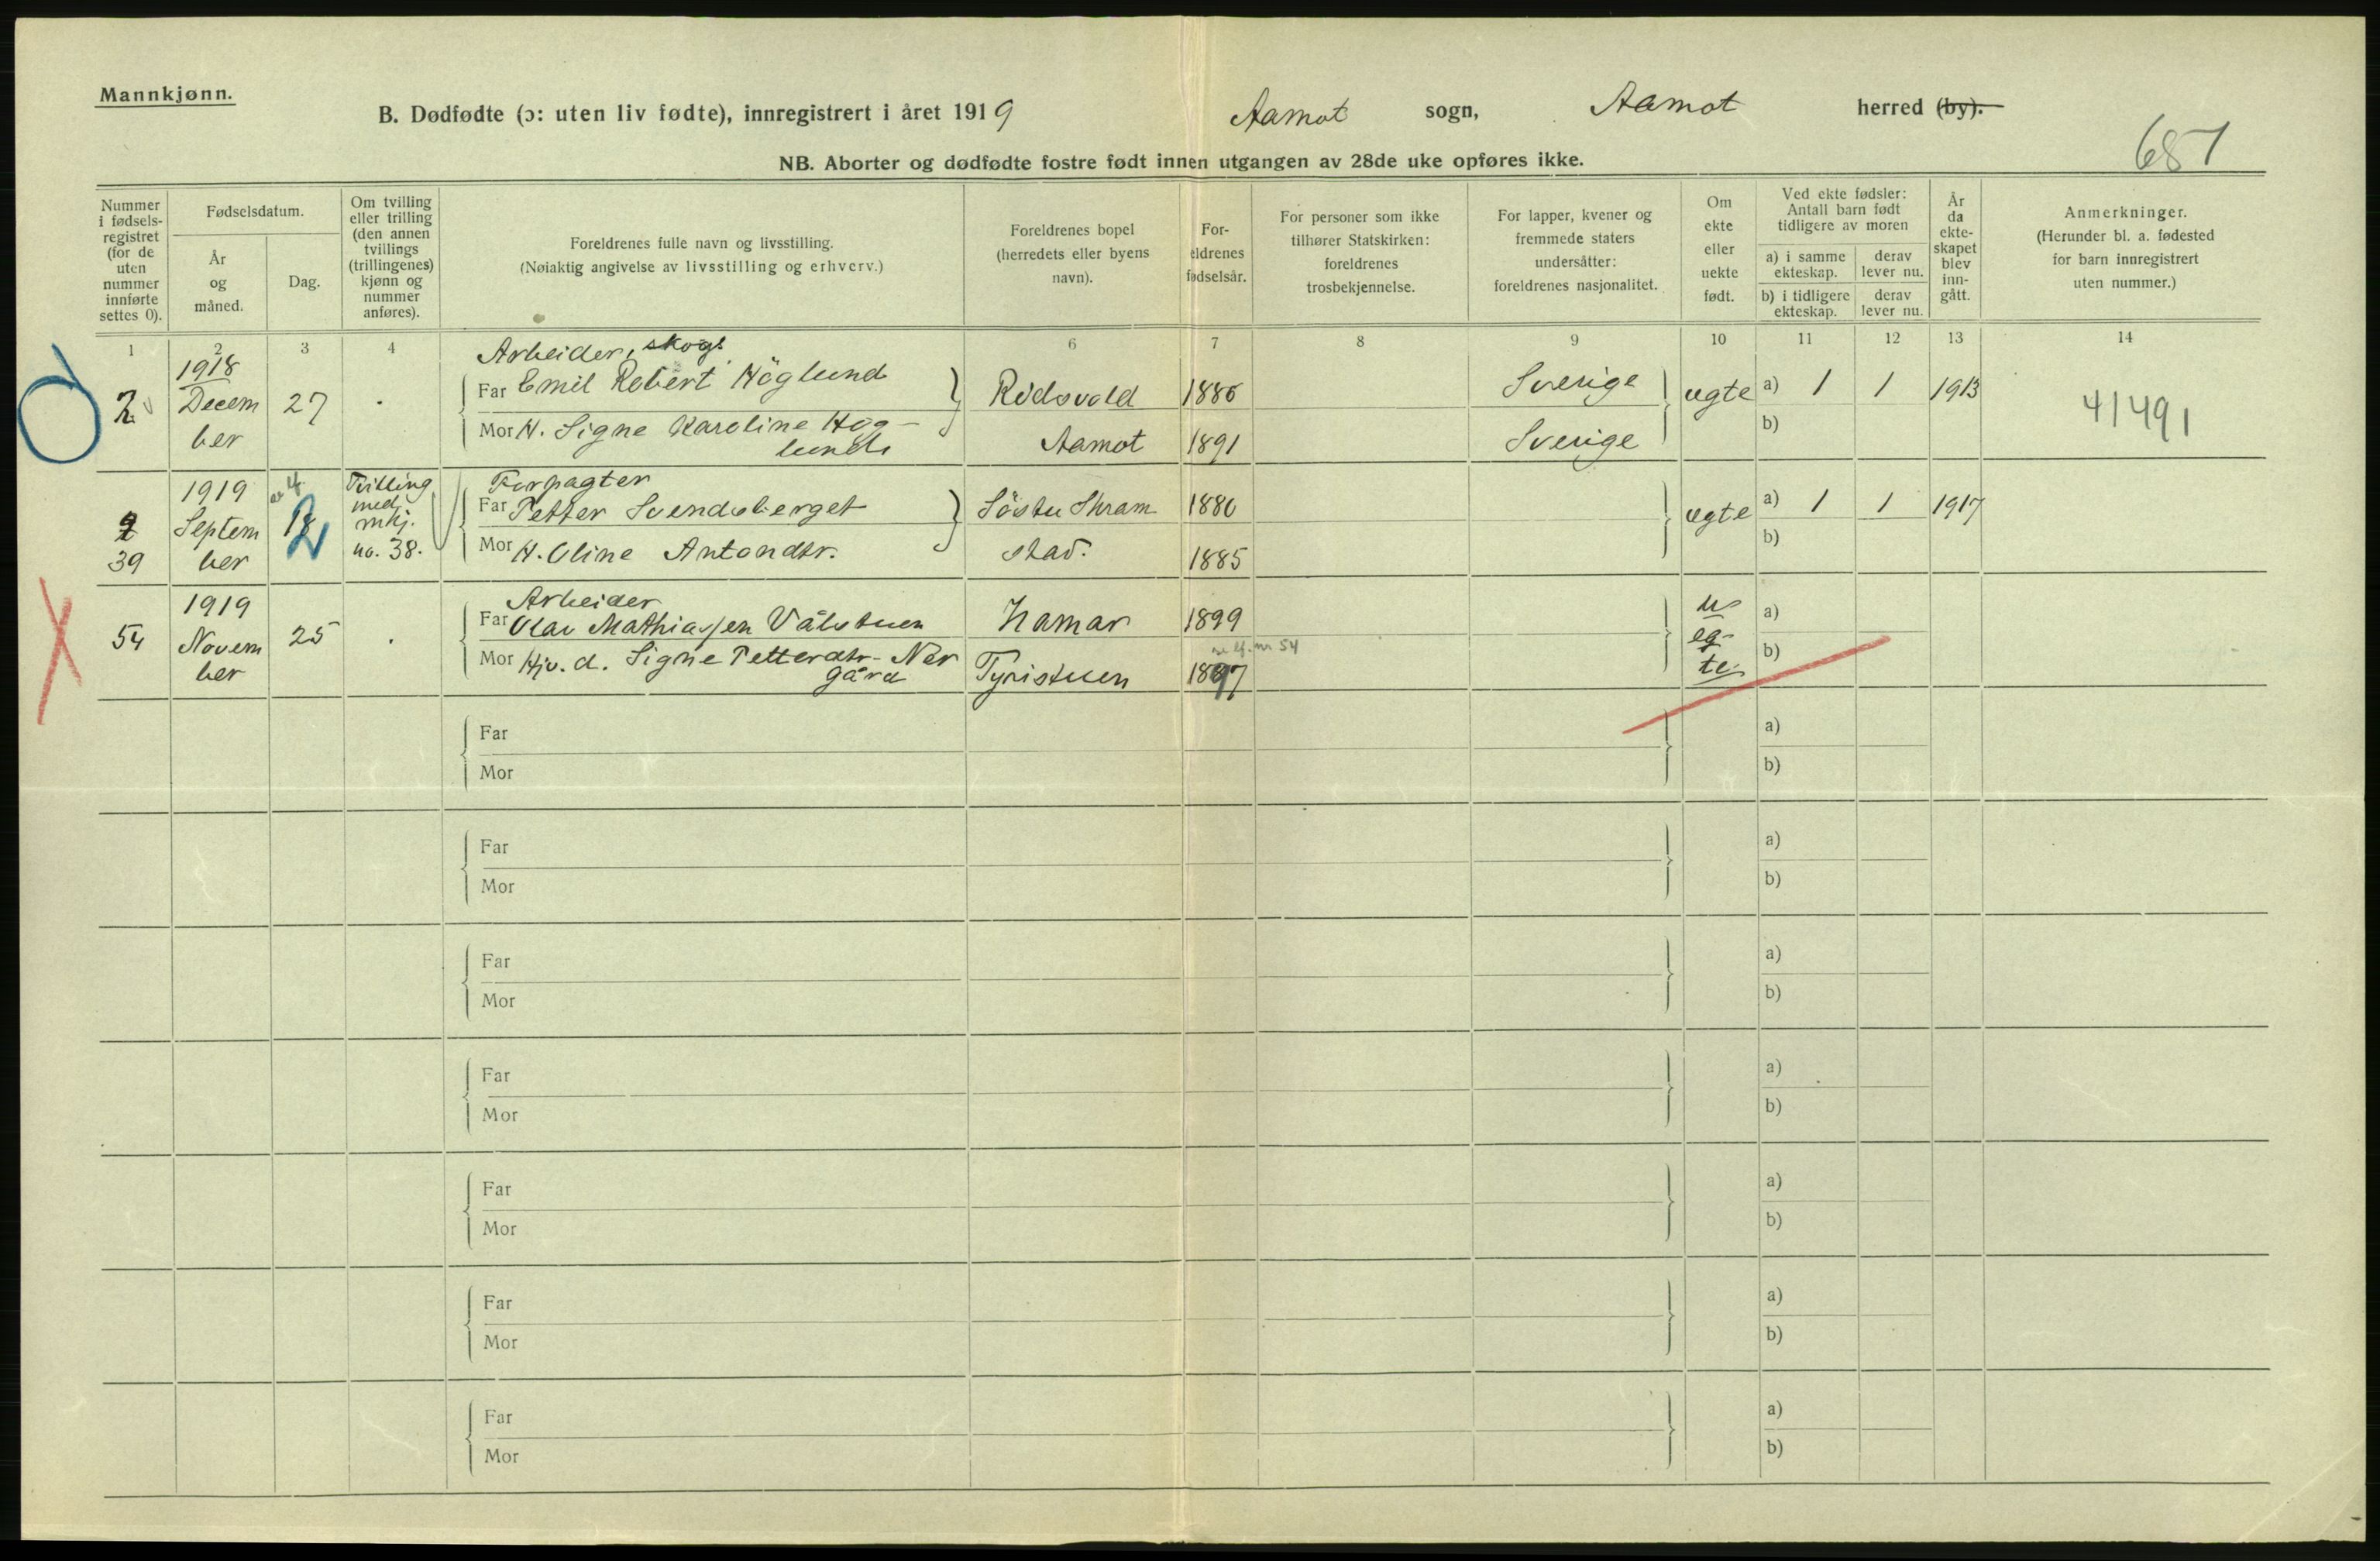 Mannkjønn.
B. Dødfødte (ɔ: uten liv fødte), innregistrert i året 1919 Aamot sogn, Aamot herred (by).
687
NB. Aborter og dødfødte fostre født innen utgangen av 28de uke opføres ikke.
Nummer i fødsels-registret (for de uten nummer innførte settes 0).
Fødselsdatum.
År og måned.
Dag.
Om tvilling eller trilling (den annen tvillings (trillingenes) kjønn og nummer anføres).
Foreldrenes fulle navn og livsstilling.
(Nøiaktig angivelse av livsstilling og erhverv.)
Foreldrenes bopel (herredets eller byens navn).
For-eldrenes fødselsår.
For personer som ikke tilhører Statskirken: foreldrenes trosbekjennelse.
For lapper, kvener og fremmede staters undersåtter: foreldrenes nasjonalitet.
Om ekte eller uekte født.
Ved ekte fødsler: Antall barn født tidligere av moren
a) i samme ekteskap.
derav lever nu.
b) i tidligere ekteskap.
derav lever nu.
År da ekte-skapet blev inn-gått.
Anmerkninger.
(Herunder bl. a. fødested for barn innregistrert uten nummer.)
1 2 3 4 6 7 8 9 10 11 12 13 14
Arbeider, skogs
1918
2 Decem 27 . Far Emil Robert Höglund Rödsvold 1886 Sverige egte a) 1 1 1913
ber Mor H. Signe Karoline Hög- Aamot 1891 Sverige b)
lund
41491
1919 Tvilling Forpagter
2 Septem 18 med Far Petter Svendsberget Söstu Skram 1880 egte a) 1 1 1917
mkj.
39 ber no. 38. Mor H. Oline Antondtr. stad. 1885 b)
1919 Arbeider
54 Novem 25 . Far Olav Mathiassen Vålstuen Hamar 1899 u- a)
nr 54
ber Mor Hjv. d. Signe Petterdtr. Ner Tyristuen 1897 eg- b)
gård te
Far a)
Mor b)
Far a)
Mor b)
Far a)
Mor b)
Far a)
Mor b)
Far a)
Mor b)
Far a)
Mor b)
Far a)
Mor b)